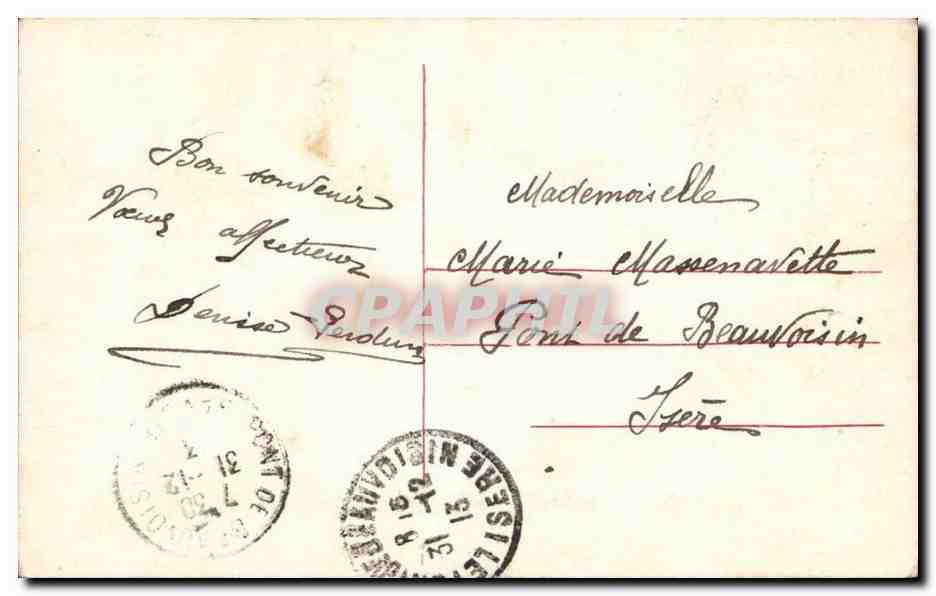 Bon souvenir
Voeux affectueux
Denise Perdun
Mademoiselle
Marie Massenavette
Pont de Beauvoisin
Isère
CPAPHIL
PONT DE BEAUVOISIN
7 30
31 -12
8 15
31 -12
13